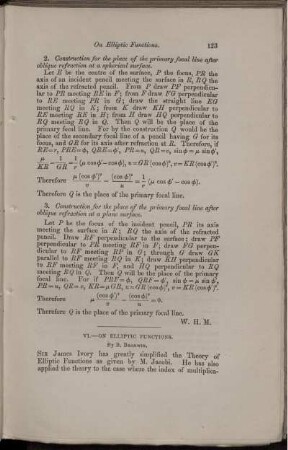 On Elliptic Functions. 123
2. Construction for the place of the primary focal line after
oblique refraction at a spherical surface.
Let E be the centre of the surface, P the focus, PR the
axis of an incident pencil meeting the surface in R, RQ the
axis of the refracted pencil. From P draw PF perpendicu-
lar to PR meeting RE in F; from F draw FG perpendicular
to RE meeting PR in G; draw the straight line EG
meeting RQ in K; from K draw KH perpendicular to
RE meeting RE in H; from H draw HQ perpendicular to
RQ meeting RQ in Q. Then Q will be the place of the
primary focal line. For by the construction Q would be the
place of the secondary focal line of a pencil having G for its
focus, and GR for its axis after refraction at R. Therefore, if
RE=r, PRE=ϕ, QRE=ϕ', PR=u, QR=v, sin ϕ = μ sin ϕ',
μ/KR − 1/GR = 1/r (μ cos ϕ' − cos ϕ), u = GR (cos ϕ)², v = KR (cos ϕ')².
Therefore μ (cos ϕ')²/v − (cos ϕ)²/u = 1/r (μ cos ϕ' − cos ϕ).
Therefore Q is the place of the primary focal line.
3. Construction for the place of the primary focal line after
oblique refraction at a plane surface.
Let P be the focus of the incident pencil, PR its axis
meeting the surface in R; RQ the axis of the refracted
pencil. Draw RF perpendicular to the surface; draw PF
perpendicular to PR meeting RF in F; draw FG perpen-
dicular to RF meeting RP in G; through G draw GK
parallel to RF meeting RQ in K; draw KH perpendicular
to RF meeting RF in H, and HQ perpendicular to RQ
meeting RQ in Q. Then Q will be the place of the primary
focal line. For if PRF=ϕ, QRF=ϕ', sin ϕ = μ sin ϕ',
PR=u, QR=v, KR=μGR, u=GR (cos ϕ)², v=KR (cos ϕ')².
Therefore μ (cos ϕ')²/v − (cos ϕ)²/u = 0.
Therefore Q is the place of the primary focal line.
W. H. M.
VI.—ON ELLIPTIC FUNCTIONS.
By B. Bronwin.
Sir James Ivory has greatly simplified the Theory of
Elliptic Functions as given by M. Jacobi. He has also
applied the theory to the case where the index of multiplica-